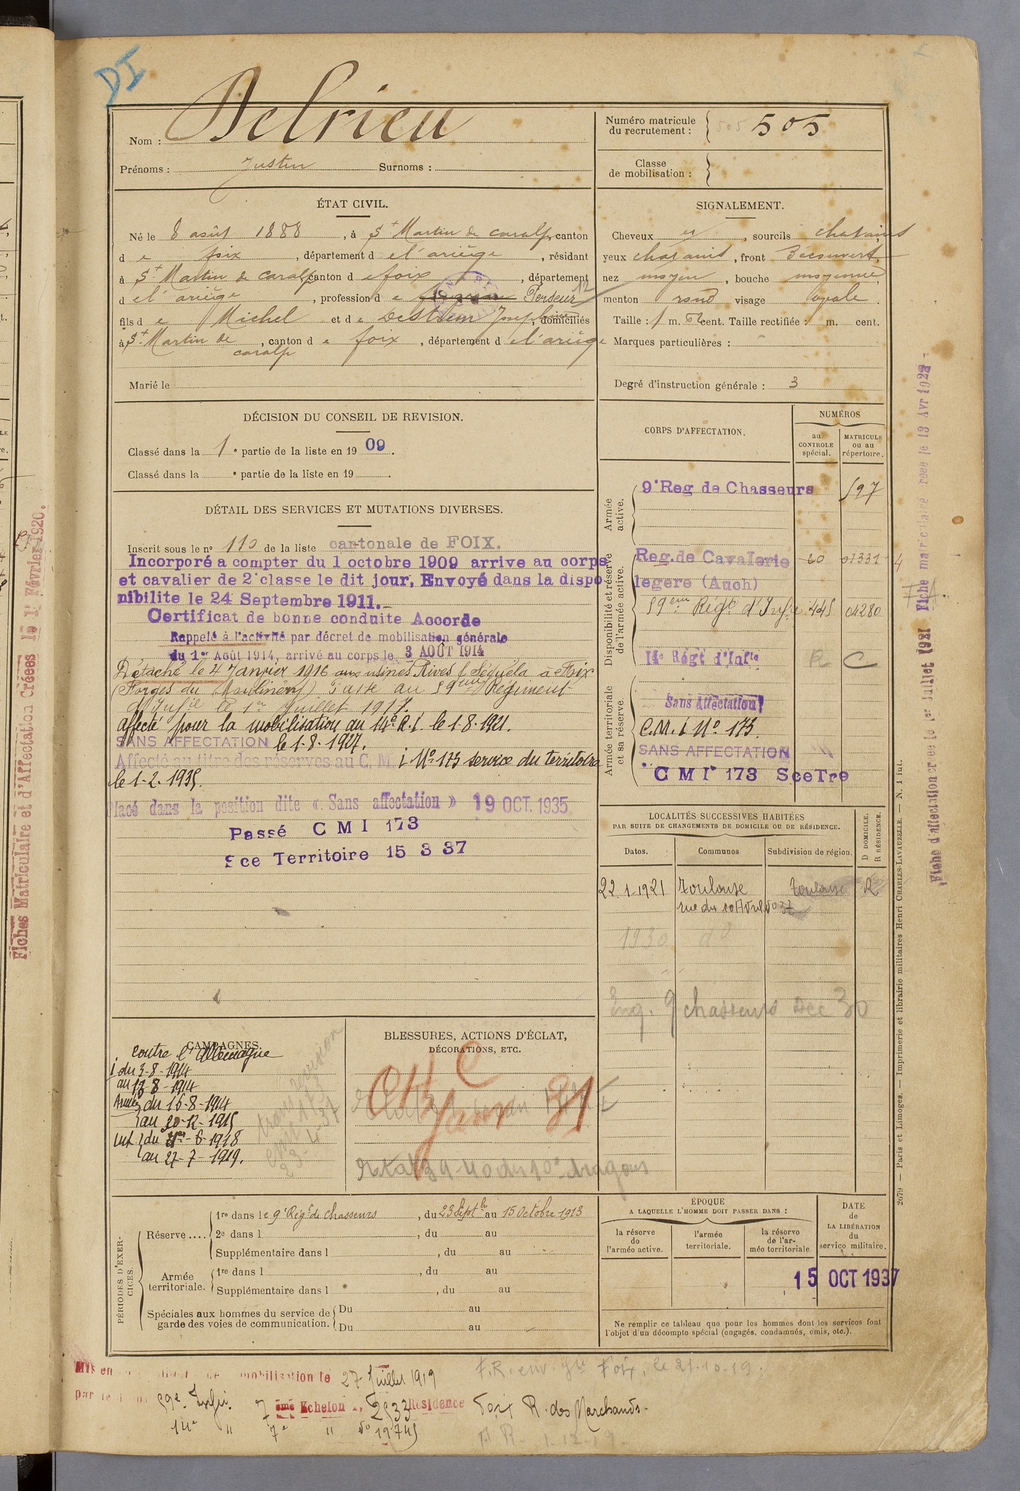 DI
Nom : Delrieu
Prénoms : Justin Surnoms :
Numéro matricule du recrutement : 505
Classe de mobilisation :
ÉTAT CIVIL.
Né le 8 août 1888, à St Martin de caralp, canton
de foix, département de l'ariège, résidant
à St Martin de caralp canton de foix, département
de l'ariège, profession de Perseur
fils de Michel et de Destrem Joséphine, domiciliés
à St Martin de caralp, canton de foix, département de l'ariège
Marié le
SIGNALEMENT.
Cheveux et, sourcils chatains
yeux chatains, front découvert
nez moyen, bouche moyenne
menton rond visage ovale.
Taille : 1 m. 62 cent. Taille rectifiée : m. cent.
Marques particulières :
Degré d'instruction générale : 3
DÉCISION DU CONSEIL DE REVISION.
Classé dans la 1e partie de la liste en 1909.
Classé dans la e partie de la liste en 19 .
DÉTAIL DES SERVICES ET MUTATIONS DIVERSES.
Inscrit sous le n° 110 de la liste cantonale de FOIX.
Incorporé a compter du 1 octobre 1909 arrive au corps
et cavalier de 2e classe le dit jour, Envoyé dans la dispo
nibilite le 24 Septembre 1911.
Certificat de bonne conduite Accorde
Rappelé à l'activité par décret de mobilisation générale
du 1er Août 1914, arrivé au corps le 3 AOUT 1914
Détaché le 2 Janvier 1916 aux usines Rives f. Séguéla à Foix
(Forges du Moulinéry) Passé au 59eme Régiment
d'Infie le 1er Juillet 1917.
affecté pour la mobilisation au 14e R.I. le 1.8.1921.
SANS AFFECTATION le 1.8.1927.
Affecté au titre des réserves au C. M. i No 173 service du territoire
le 1-2-1935.
Placé dans la position dite « Sans affectation » 19 OCT. 1935
Passé C M I 173
Sce Territoire 15 3 37
CORPS D'AFFECTATION.
NUMÉROS
au CONTROLE spécial.
MATRICULE ou au répertoire.
Armée active.
9e Reg de Chasseurs 597
Disponibilité et réserve de l'armée active.
Reg. de Cavalerie 60 01331
legere (Auch)
59eme Régt d'Infie 445 04280
14e Régt d'Infie R C
Armée territoriale et sa réserve.
Sans Affectation
C.M.i No 173.
SANS-AFFECTATION
C M Ie 173 SceTre
LOCALITÉS SUCCESSIVES HABITÉES
PAR SUITE DE CHANGEMENTS DE DOMICILE OU DE RÉSIDENCE.
Dates. Communes Subdivision de région. D DOMICILE. R RÉSIDENCE.
22.1.1921 Toulouse Toulouse R
rue du 10 Avril no 37
1930
Eng. 9 chasseurs Dec 30
CAMPAGNES.
contre l'Allemagne
i du 3-8-1914
au 13-8-1914
Armée du 15-8-1914
au 20-12-1915
Int du 21-6-1918
au 27-7-1919.
BLESSURES, ACTIONS D'ÉCLAT,
DÉCORATIONS, ETC.
PÉRIODES D'EXERCICES.
Réserve....
1re dans le 9e Régt de chasseurs, du 23 Septbre au 15 Octobre 1913
2e dans l , du au
Supplémentaire dans l , du au
Armée territoriale.
1re dans l , du au
Supplémentaire dans l , du au
Spéciales aux hommes du service de garde des voies de communication.
Du au
Du au
ÉPOQUE
A LAQUELLE L'HOMME DOIT PASSER DANS :
la réserve de l'armée active.
l'armée territoriale.
la réserve de l'armée territoriale.
DATE de LA LIBÉRATION du service militaire.
15 OCT 1937
Ne remplir ce tableau que pour les hommes dont les services font
l'objet d'un décompte spécial (engagés, condamnés, omis, etc.).
Mis en mobilisation le 27 Juillet 1919
par le 59e Infie. 7 eme Echelon, 2533 Résidence Foix R. des Marchands.
14e " 7e " No 19745
F.R. env. gie Foix, le 21.10.19.
Fiches Matriculaire et d'Affectation Créées le 1er Février 1920.
Fiche d'affectation créée le 1er Juillet 1921 Fiche matriculaire créée le 19 Avr 1922
2679 — Paris et Limoges. — Imprimerie et librairie militaires Henri CHARLES-LAVAUZELLE. — N. 1 int.